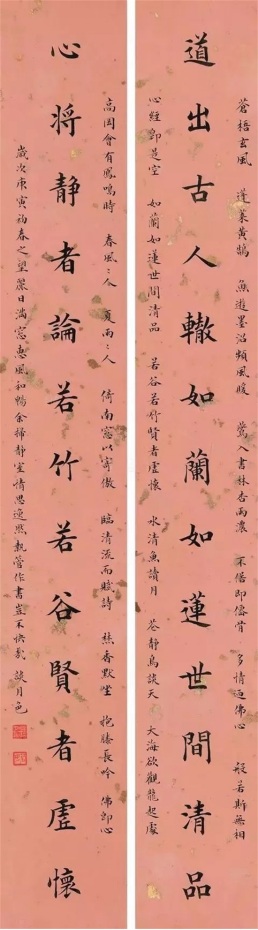 蒼梧玄風 蓬萊黃鵠 魚遊墨沼頻風暖 鶯入書林杏雨濃 不俗即儒骨 多情乃佛心 般若斯無相
道出古人轍如蘭如蓮世間清品
心經即是空 如蘭如蓮世間清品 若谷若竹賢者虛懷 水清魚讀月 花静鳥談天 大海欲觀龍起處
高岡會有鳳鳴時 春風〻人 夏雨〻人 倚南窓以寄傲 臨清流而賦詩 焚香默坐 抱膝長吟 佛即心
心将静者論若竹若谷賢者虛懷
歲次庚寅初春之望麗日满窓惠風和暢余掃静室情思逸然執管作書豈不快哉 談月色